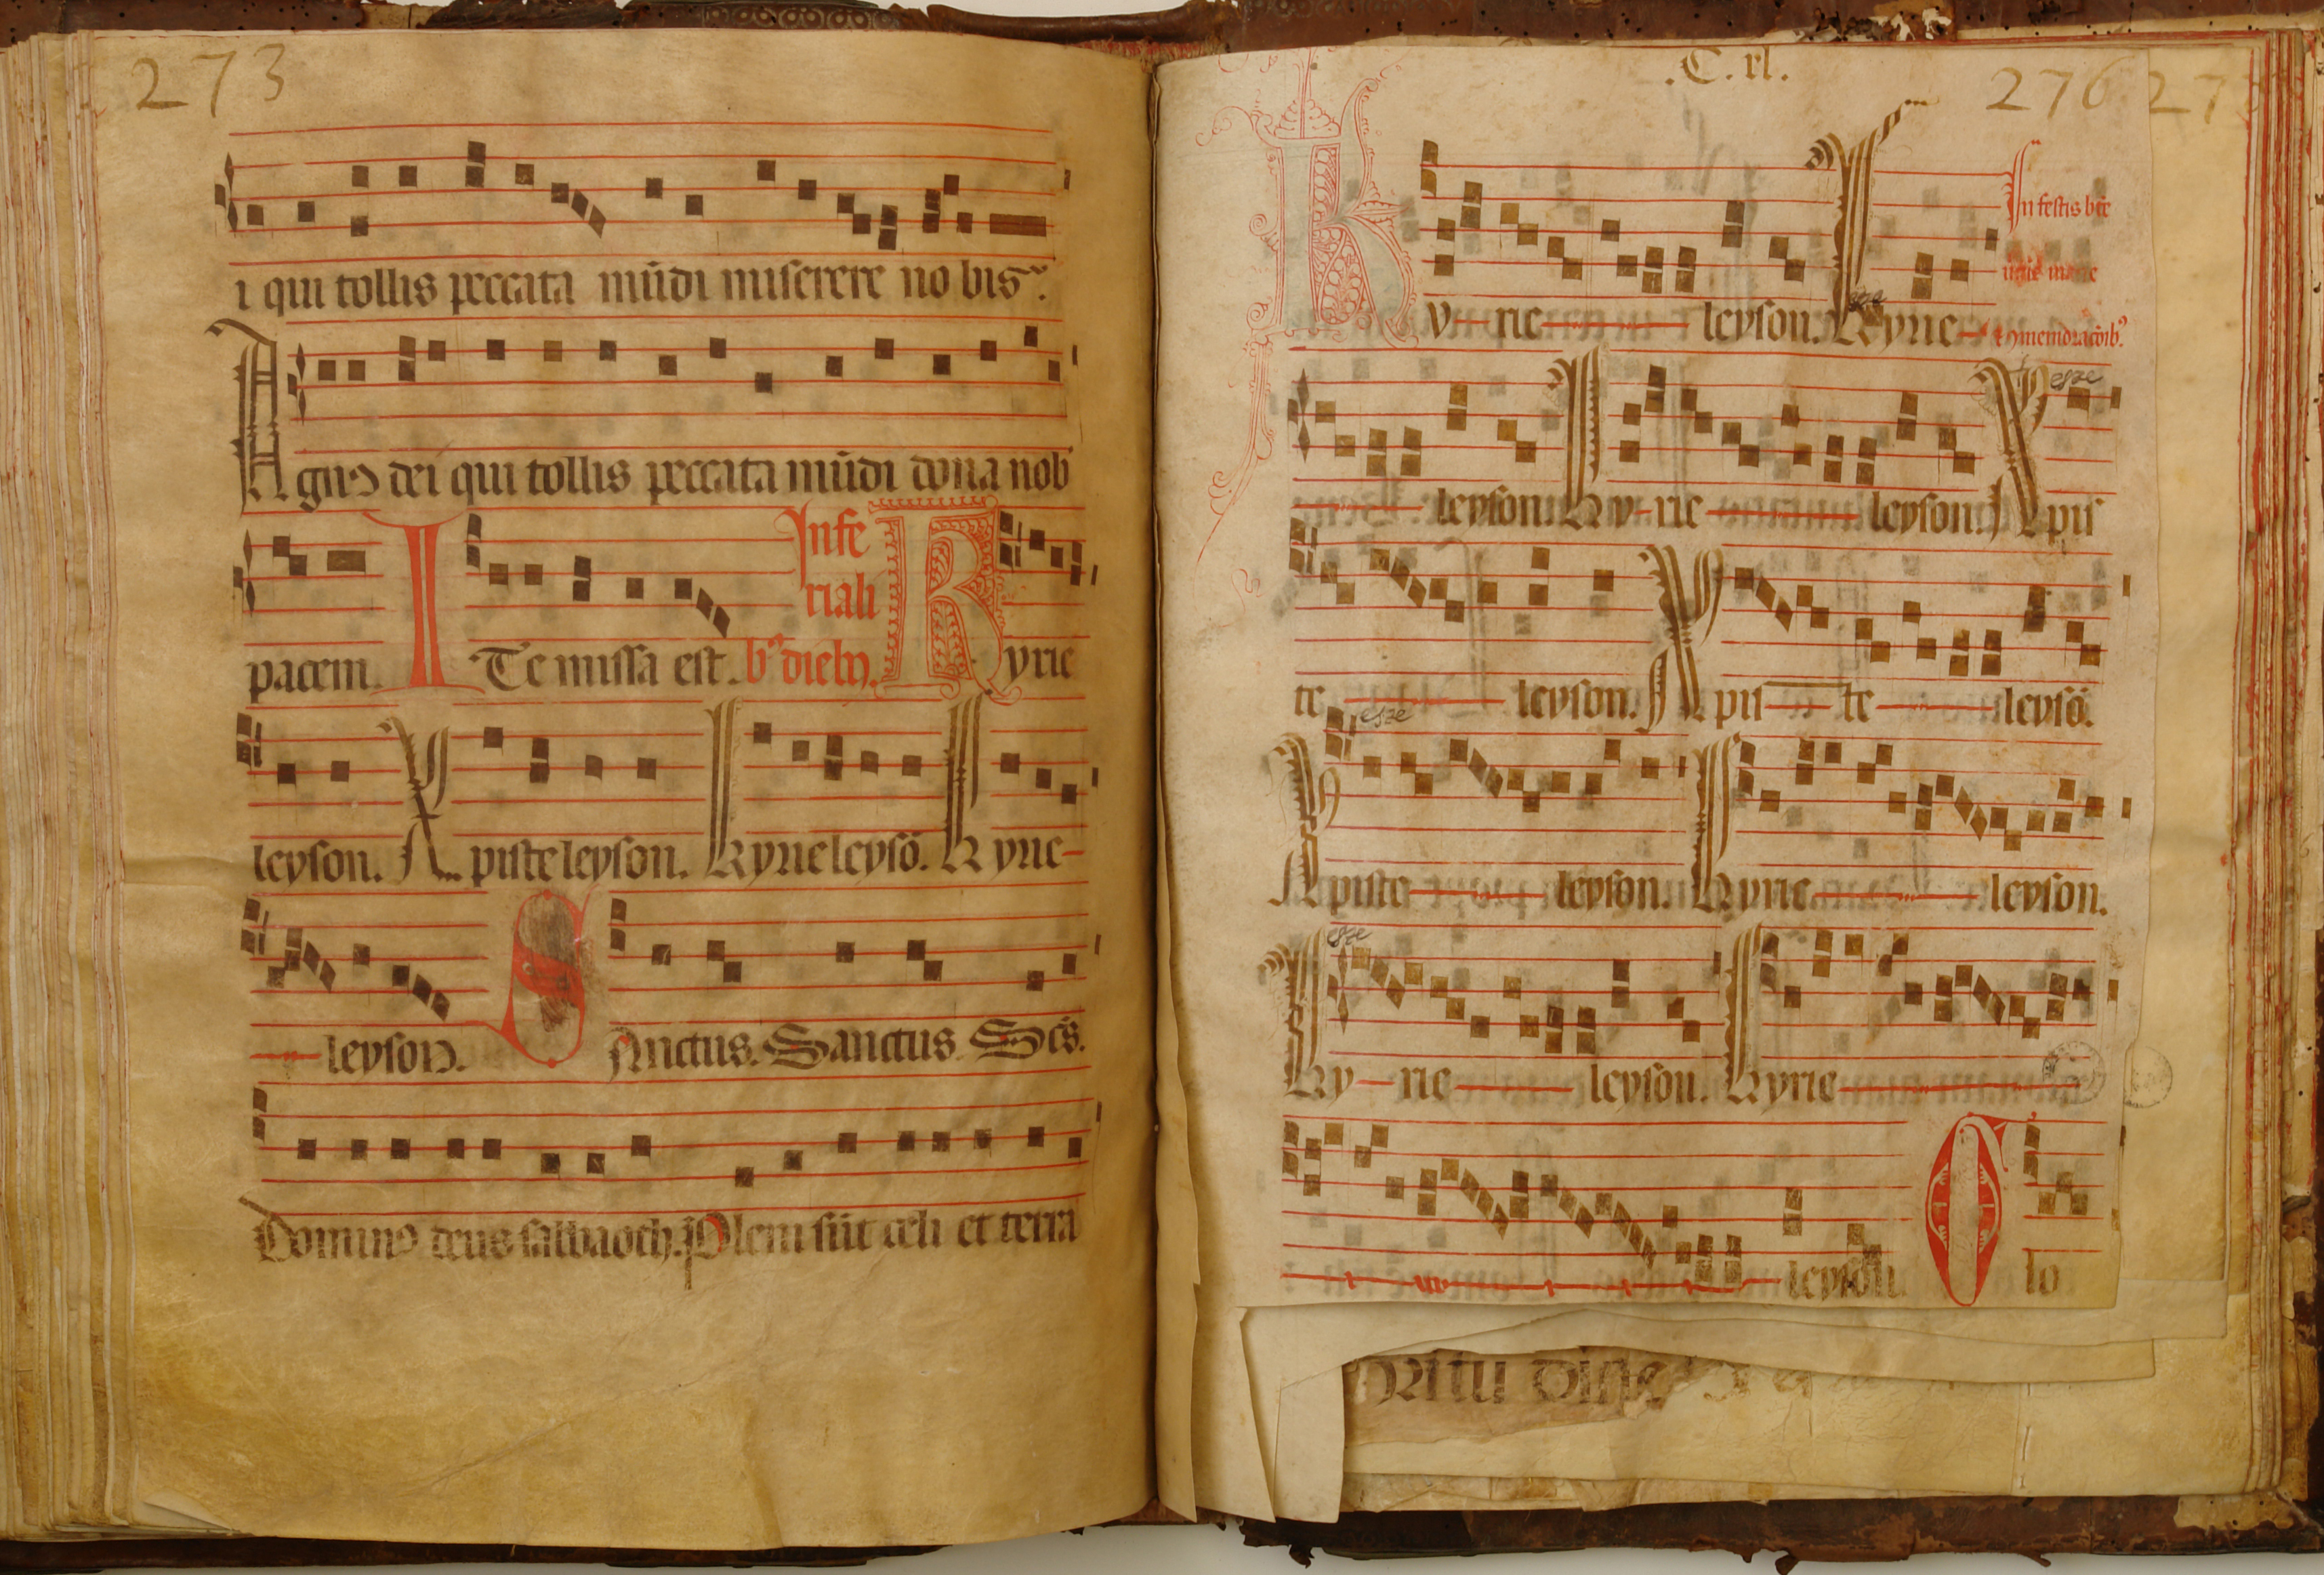 273
i qui tollis peccata mūdi miserere no bis.
Agnꝰ dei qui tollis peccata mūdi dona nob
In fe
riali
pacem. ITe missa est. bꝰ dieb. Kyrie
leyson. Xpiste leyson. Kyrie leysō. Kyrie
leyson. SAnctus. Sanctus Scs.
Dominꝰ deus sabbaoth. Pleni sūt celi et terra
.C. xl.
276 27
In festis bte
Ky rie leyson. Kyrie
leyson. Ky rie leyson. Xpis
esze
te leyson. Xpis te leysō.
esze
Xpiste leyson. Kyrie leyson.
esze
Ky rie leyson. Kyrie
leyson. Glo